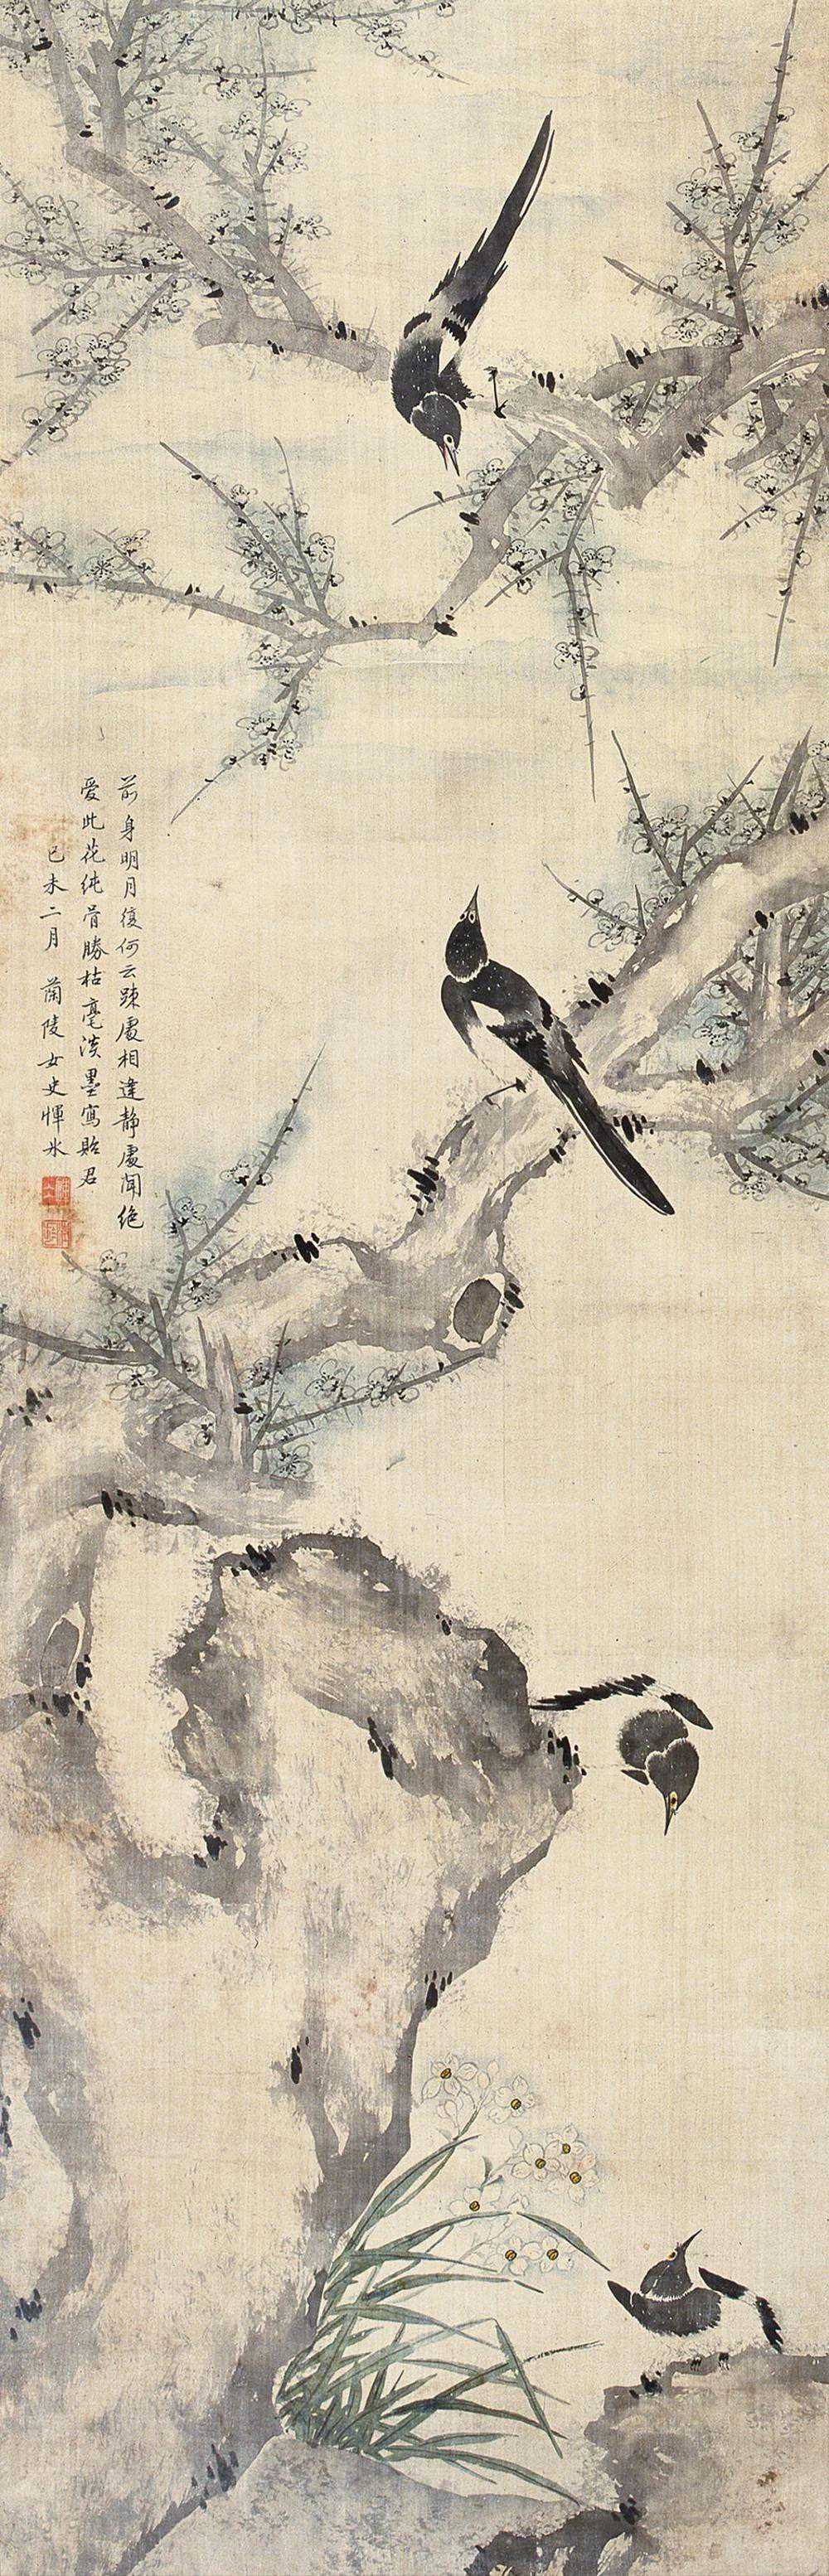 前身明月復何云踈處相逢静處聞絶
愛此花純骨勝枯毫淡墨寫貽君
己未二月 蘭陵女史惲冰